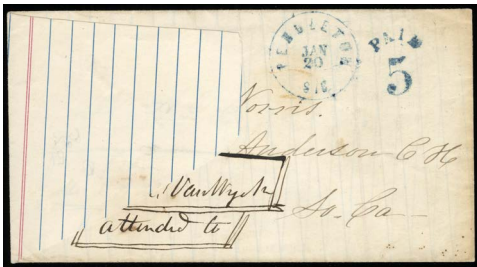 PENDLETON
JAN
20
S.C.
PAID
5
Norris.
Anderson C H
So. Ca
Van Wyck
attended to